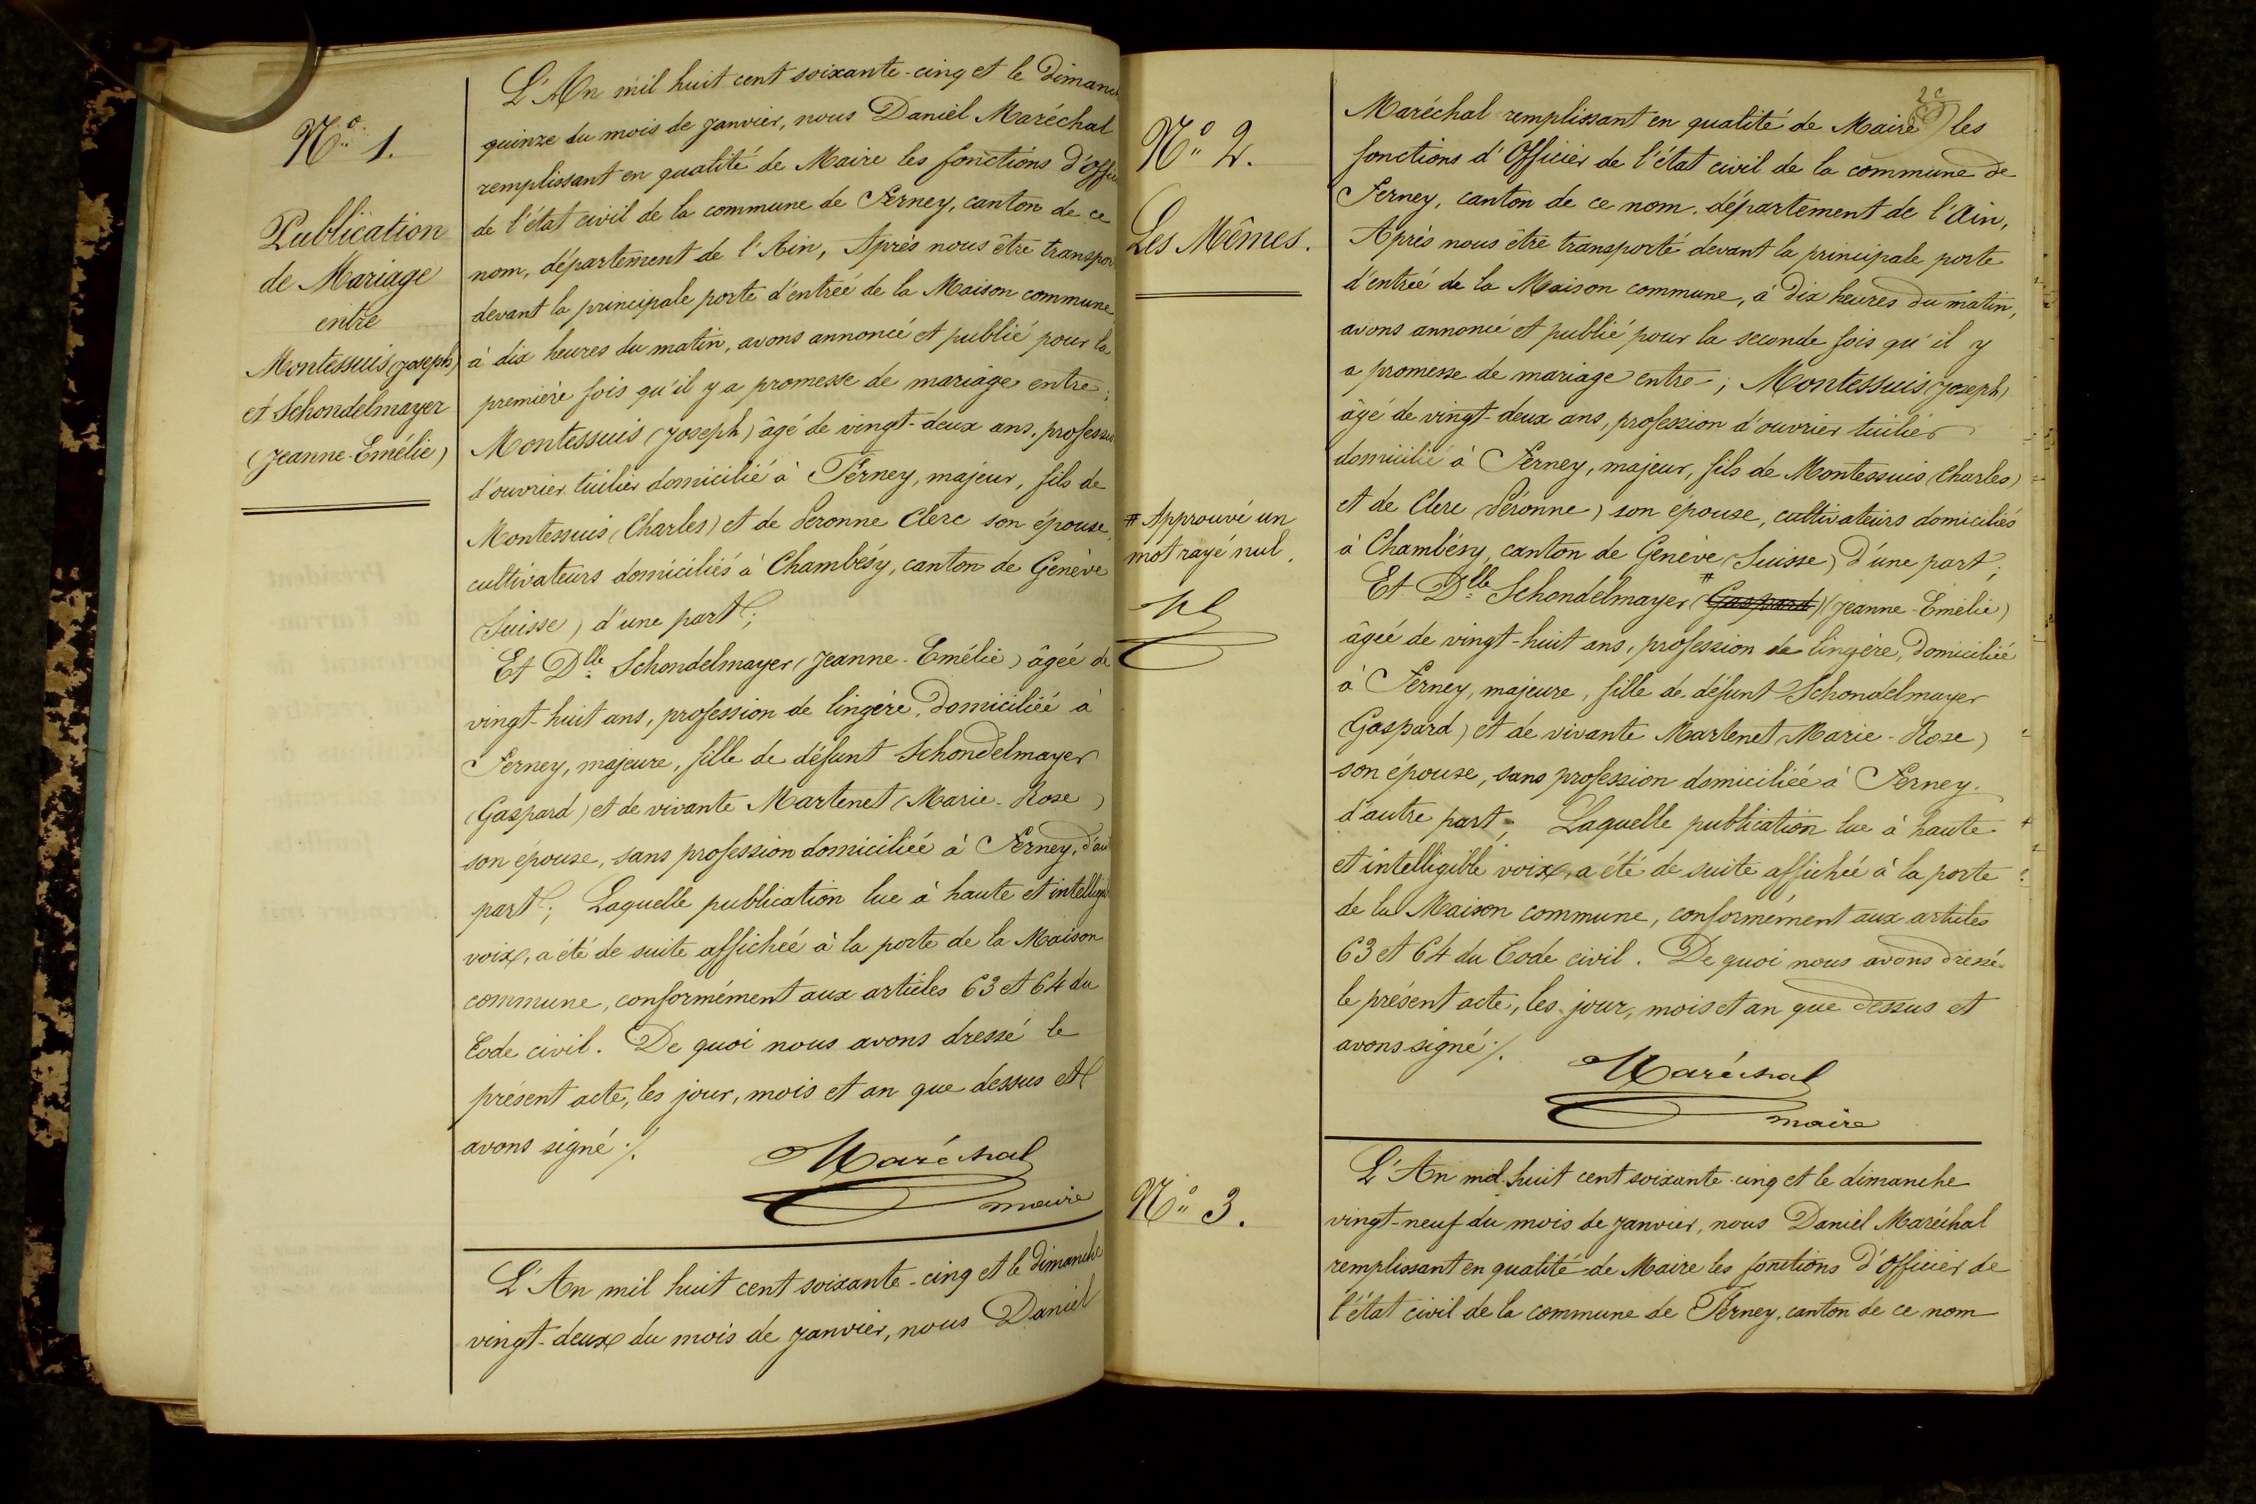 N° 1.
Publication
de Mariage
entre
Montessuis (Joseph)
et Schondelmayer
(Jeanne-Emélie)
L'An mil huit cent soixante-cinq et le Dimanc
quinze du mois de Janvier, nous Daniel Maréchal
remplissant en qualité de Maire les fonctions d'Offici
de l'état civil de la commune de Ferney, canton de ce
nom, département de l'Ain, Après nous être transpor
devant la principale porte d'entrée de la Maison commune
à dix heures du matin, avons annoncé et publié pour la
première fois qu'il y a promesse de mariage entre;
Montessuis (Joseph) âgé de vingt-deux ans, professio
d'ouvrier tuilier domicilié à Ferney, majeur, fils de
Montessuis (Charles) et de Péronne Clerc son épouse,
cultivateurs domiciliés à Chambésy, canton de Genève
(Suisse) d'une part;
Et Dlle Schondelmayer (Jeanne-Emélie) âgée de
vingt-huit ans, profession de lingère, domiciliée à
Ferney, majeure, fille de défunt Schondelmayer
(Gaspard) et de vivante Martenet (Marie-Rose)
son épouse, sans profession domiciliée à Ferney, d'au
part; Laquelle publication lue à haute et intelligi
voix, a été de suite affichée à la porte de la Maison
commune, conformément aux articles 63 et 64 du
Code civil. De quoi nous avons dressé le
présent acte, les jour, mois et an que dessus et
avons signé ./.
Maréchal
maire
L'An mil huit cent soixante-cinq et le dimanche
vingt-deux du mois de Janvier, nous Daniel
N° 2.
Les Mêmes.
# Approuvé un
mot rayé nul.
2e
Maréchal remplissant en qualité de Maire les
fonctions d'Officier de l'état civil de la commune de
Ferney, canton de ce nom, département de l'Ain,
Après nous être transporté devant la principale porte
d'entrée de la Maison commune, à dix heures du matin,
avons annoncé et publié pour la seconde fois qu'il y
a promesse de mariage entre; Montessuis (Joseph)
âgé de vingt-deux ans, profession d'ouvrier tuilier
domicilié à Ferney, majeur, fils de Montessuis (Charles)
et de Clerc (Péronne) son épouse, cultivateurs domiciliés
à Chambésy, canton de Genève (Suisse) d'une part;
Et Dlle Schondelmayer # (Gaspard) (Jeanne-Emélie)
âgée de vingt-huit ans, profession de lingère, domiciliée
à Ferney, majeure, fille de défunt Schondelmayer
(Gaspard) et de vivante Martenet (Marie-Rose)
son épouse, sans profession domiciliée à Ferney.
d'autre part; Laquelle publication lue à haute
et intelligible voix, a été de suite affichée à la porte
de la Maison commune, conformément aux articles
63 et 64 du Code civil. De quoi nous avons dressé
le présent acte, les jour, mois et an que dessus et
avons signé ./.
Maréchal
maire
N° 3.
L'An mil huit cent soixante-cinq et le dimanche
vingt-neuf du mois de Janvier, nous Daniel Maréchal
remplissant en qualité de Maire les fonctions d'Officier de
l'état civil de la commune de Ferney, canton de ce nom